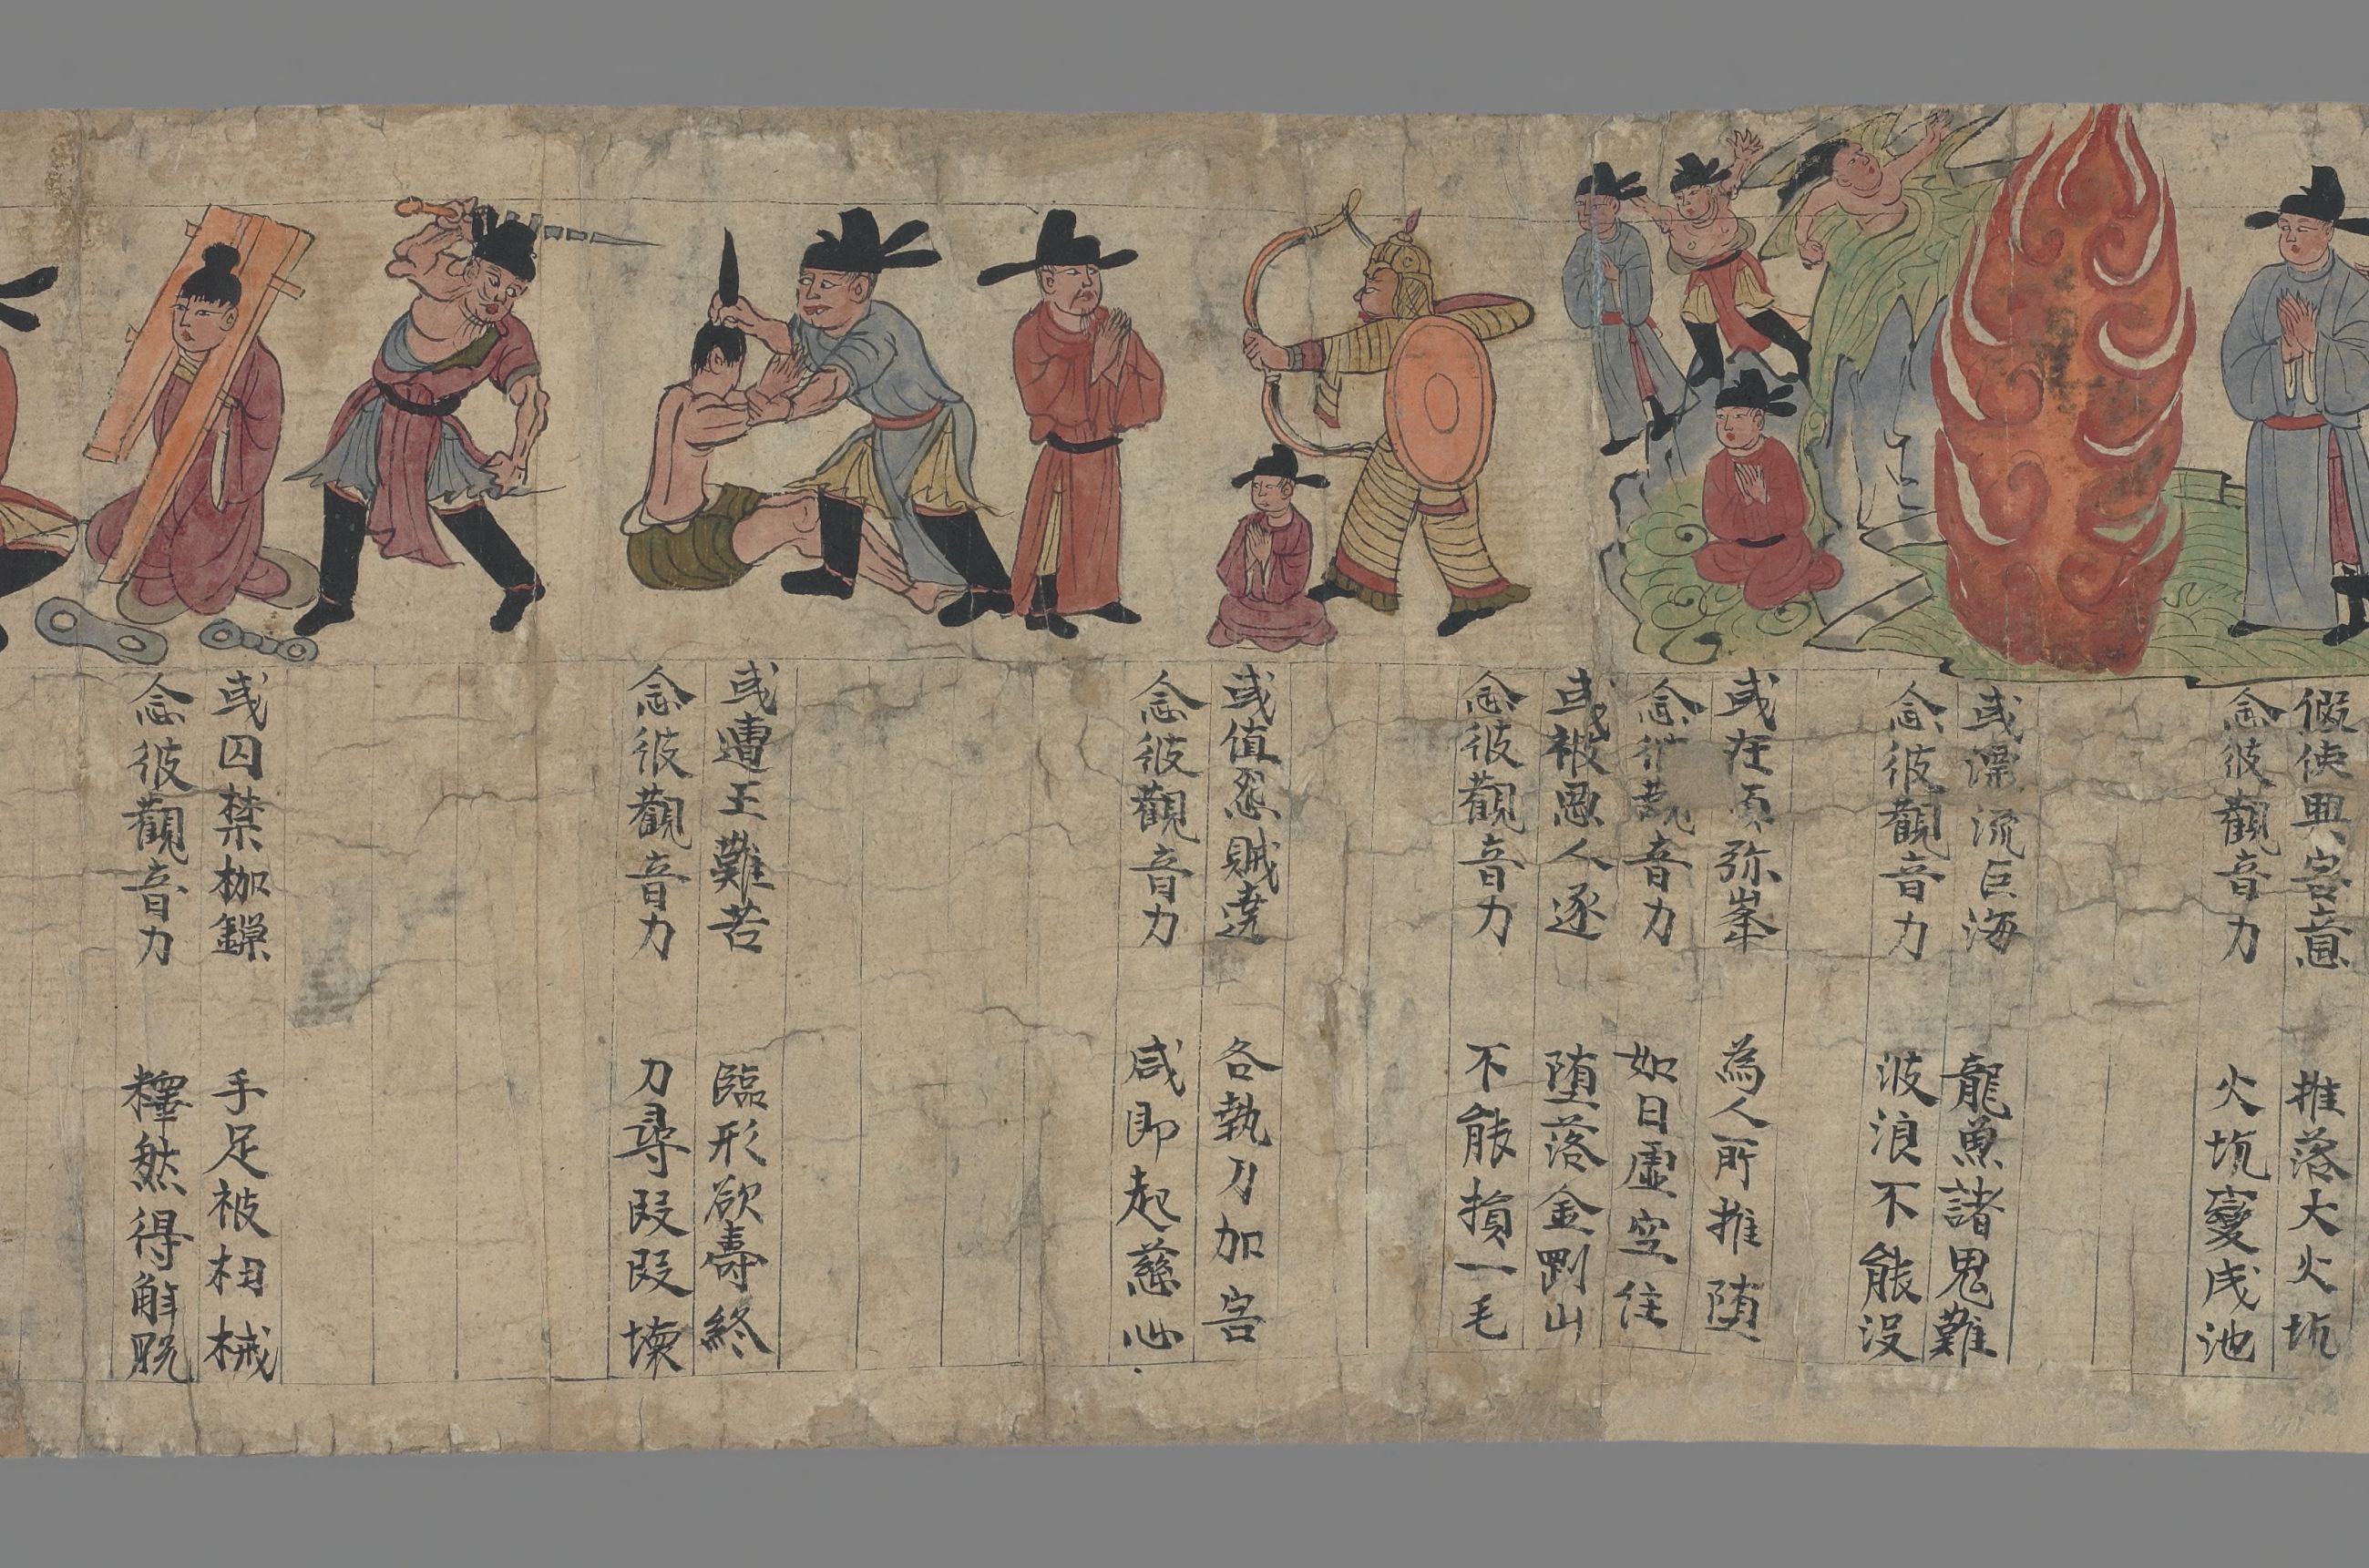 假使興害意 推落大火坑
念彼觀音力 火坑變成池
或漂流巨海 龍魚諸鬼難
念彼觀音力 波浪不能没
或在須弥峯 為人所推堕
念彼觀音力 如日虚空住
或被惡人逐 堕落金剛山
念彼觀音力 不能損一毛
或值怨賊遶 各執刀加害
念彼觀音力 咸即起慈心
或遭王難苦 臨形欲壽終
念彼觀音力 刀尋段段壊
或囚禁枷鏁 手足被杻械
念彼觀音力 釋然得解脱